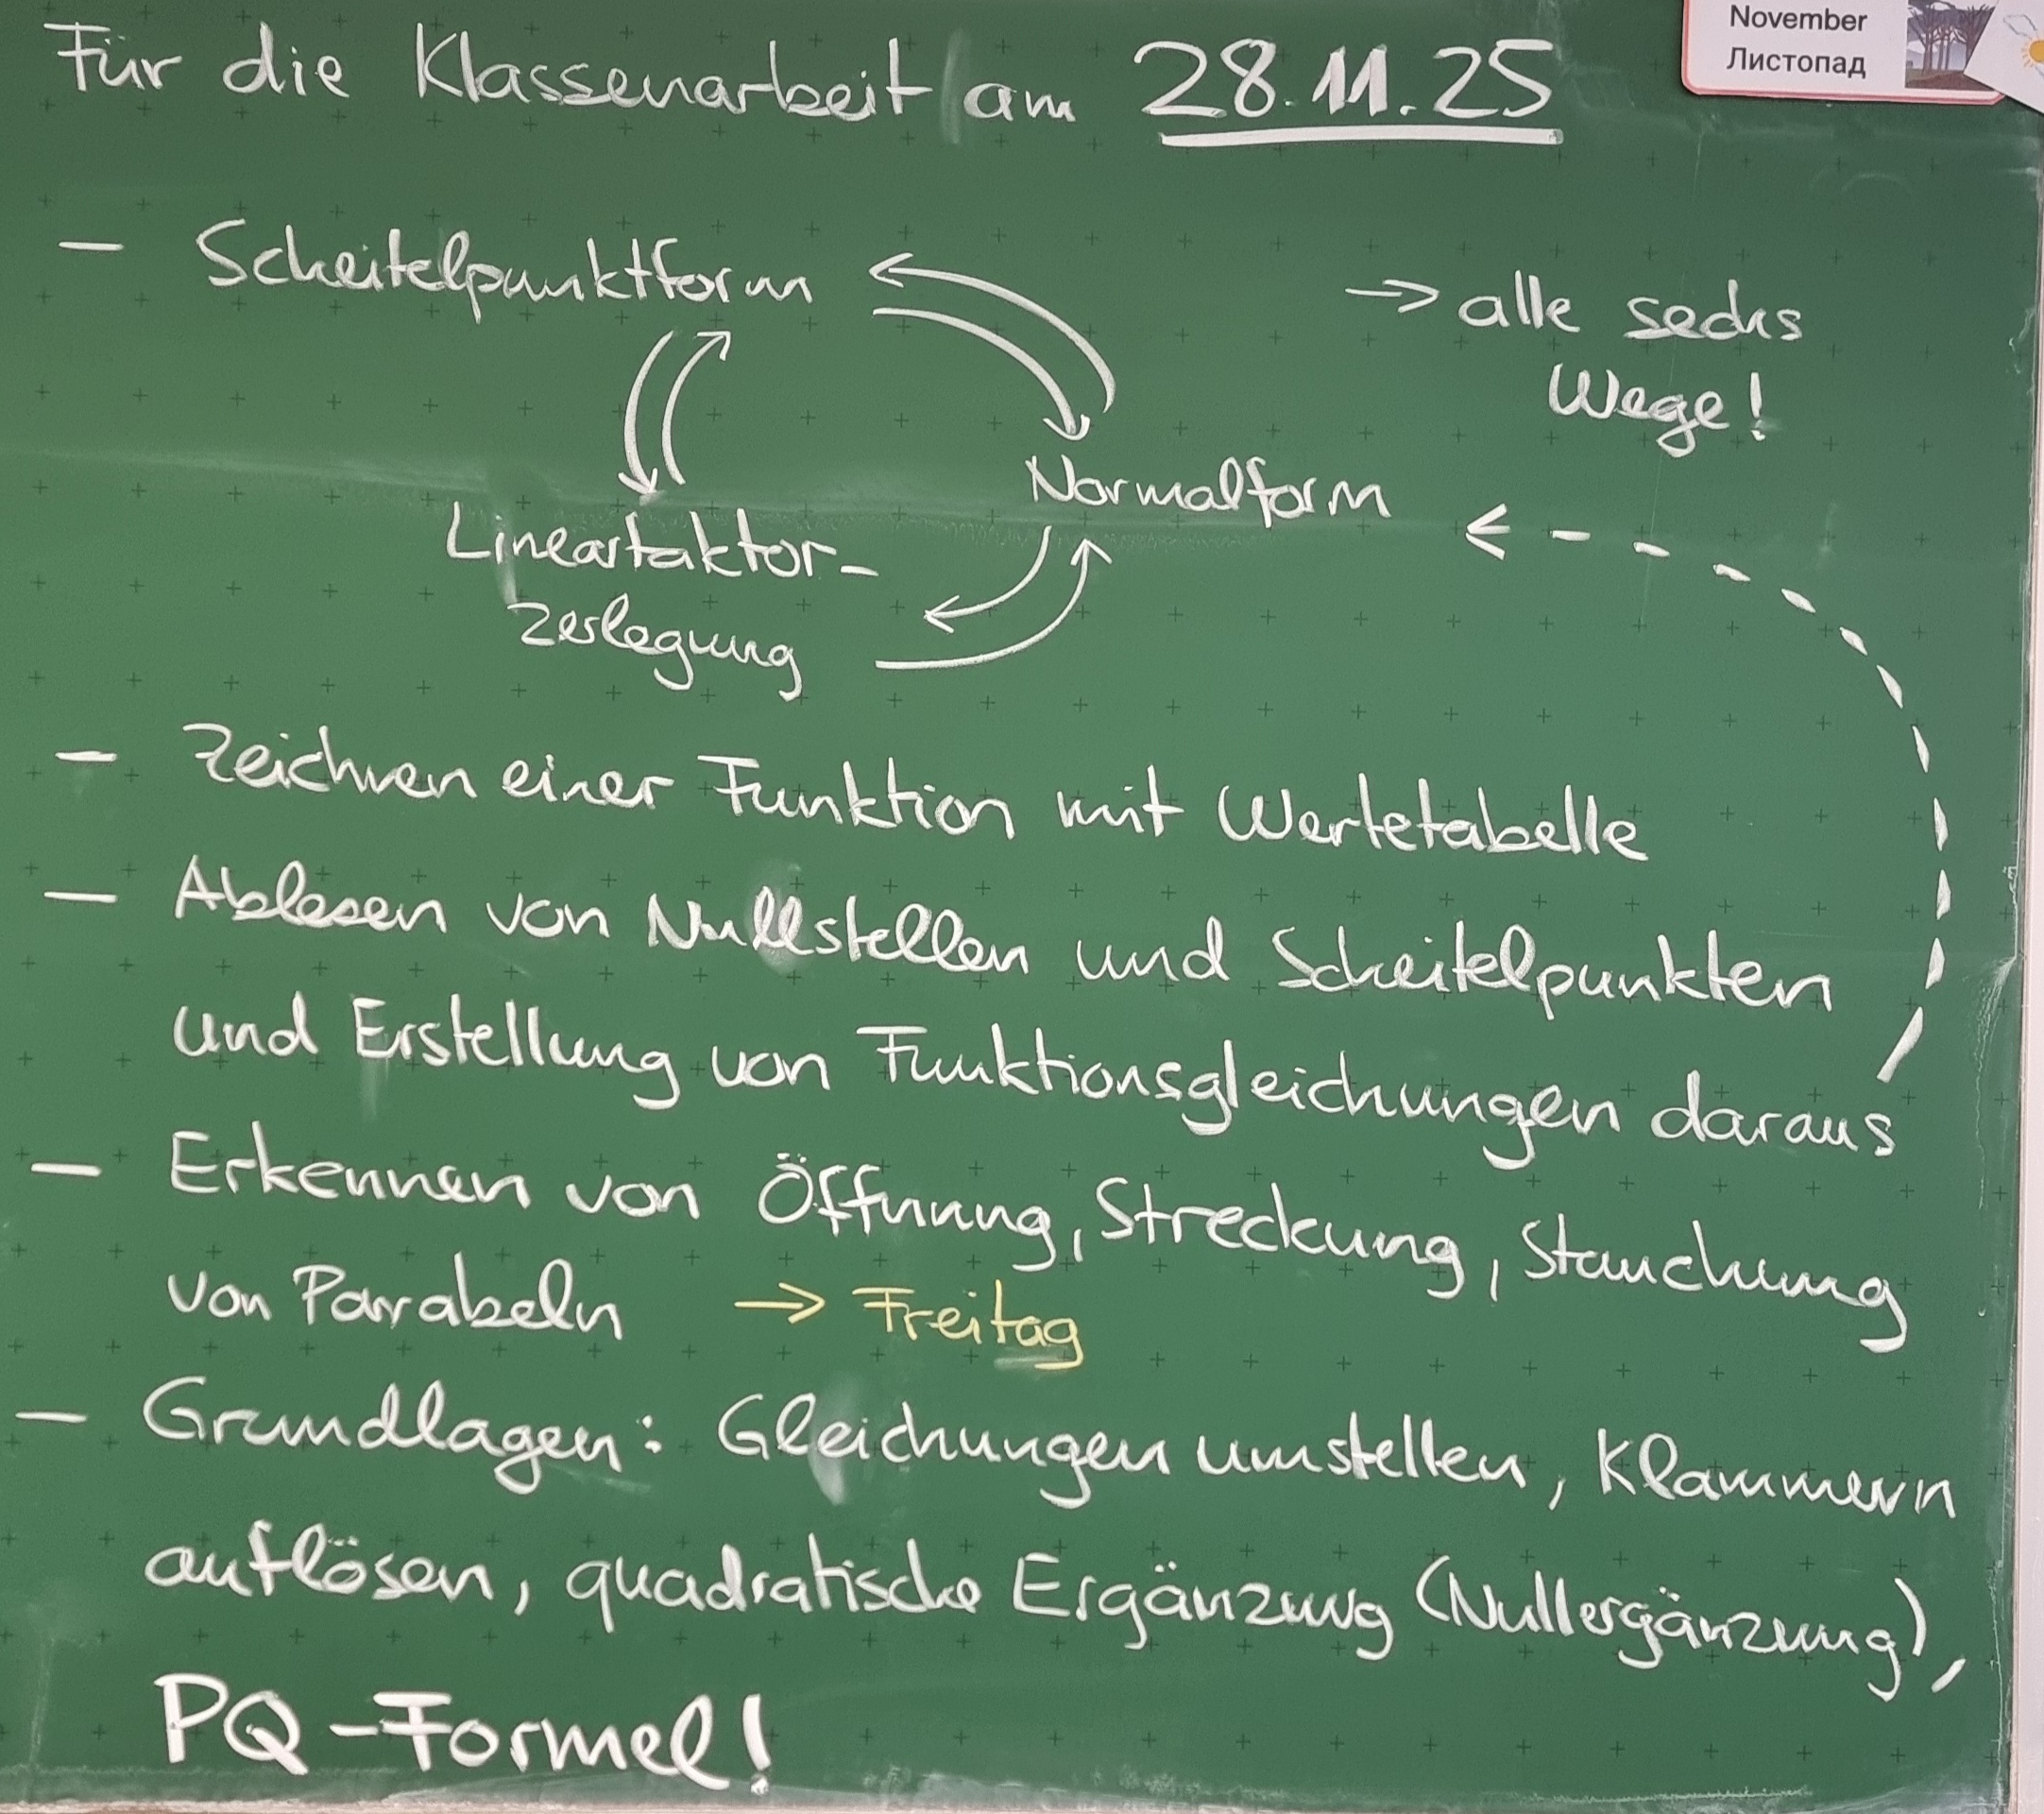 November
Листопад
Für die Klassenarbeit am 28.11.25
- Scheitelpunktform
→ alle sechs
Wege!
Normalform
Linearfaktor-
zerlegung
- Zeichnen einer Funktion mit Wertetabelle
- Ablesen von Nullstellen und Scheitelpunkten
und Erstellung von Funktionsgleichungen daraus
- Erkennen von Öffnung, Streckung, Stauchung
von Parabeln → Freitag
- Grundlagen: Gleichungen umstellen, Klammern
auflösen, quadratische Ergänzung (Nullergänzung),
PQ-Formel!